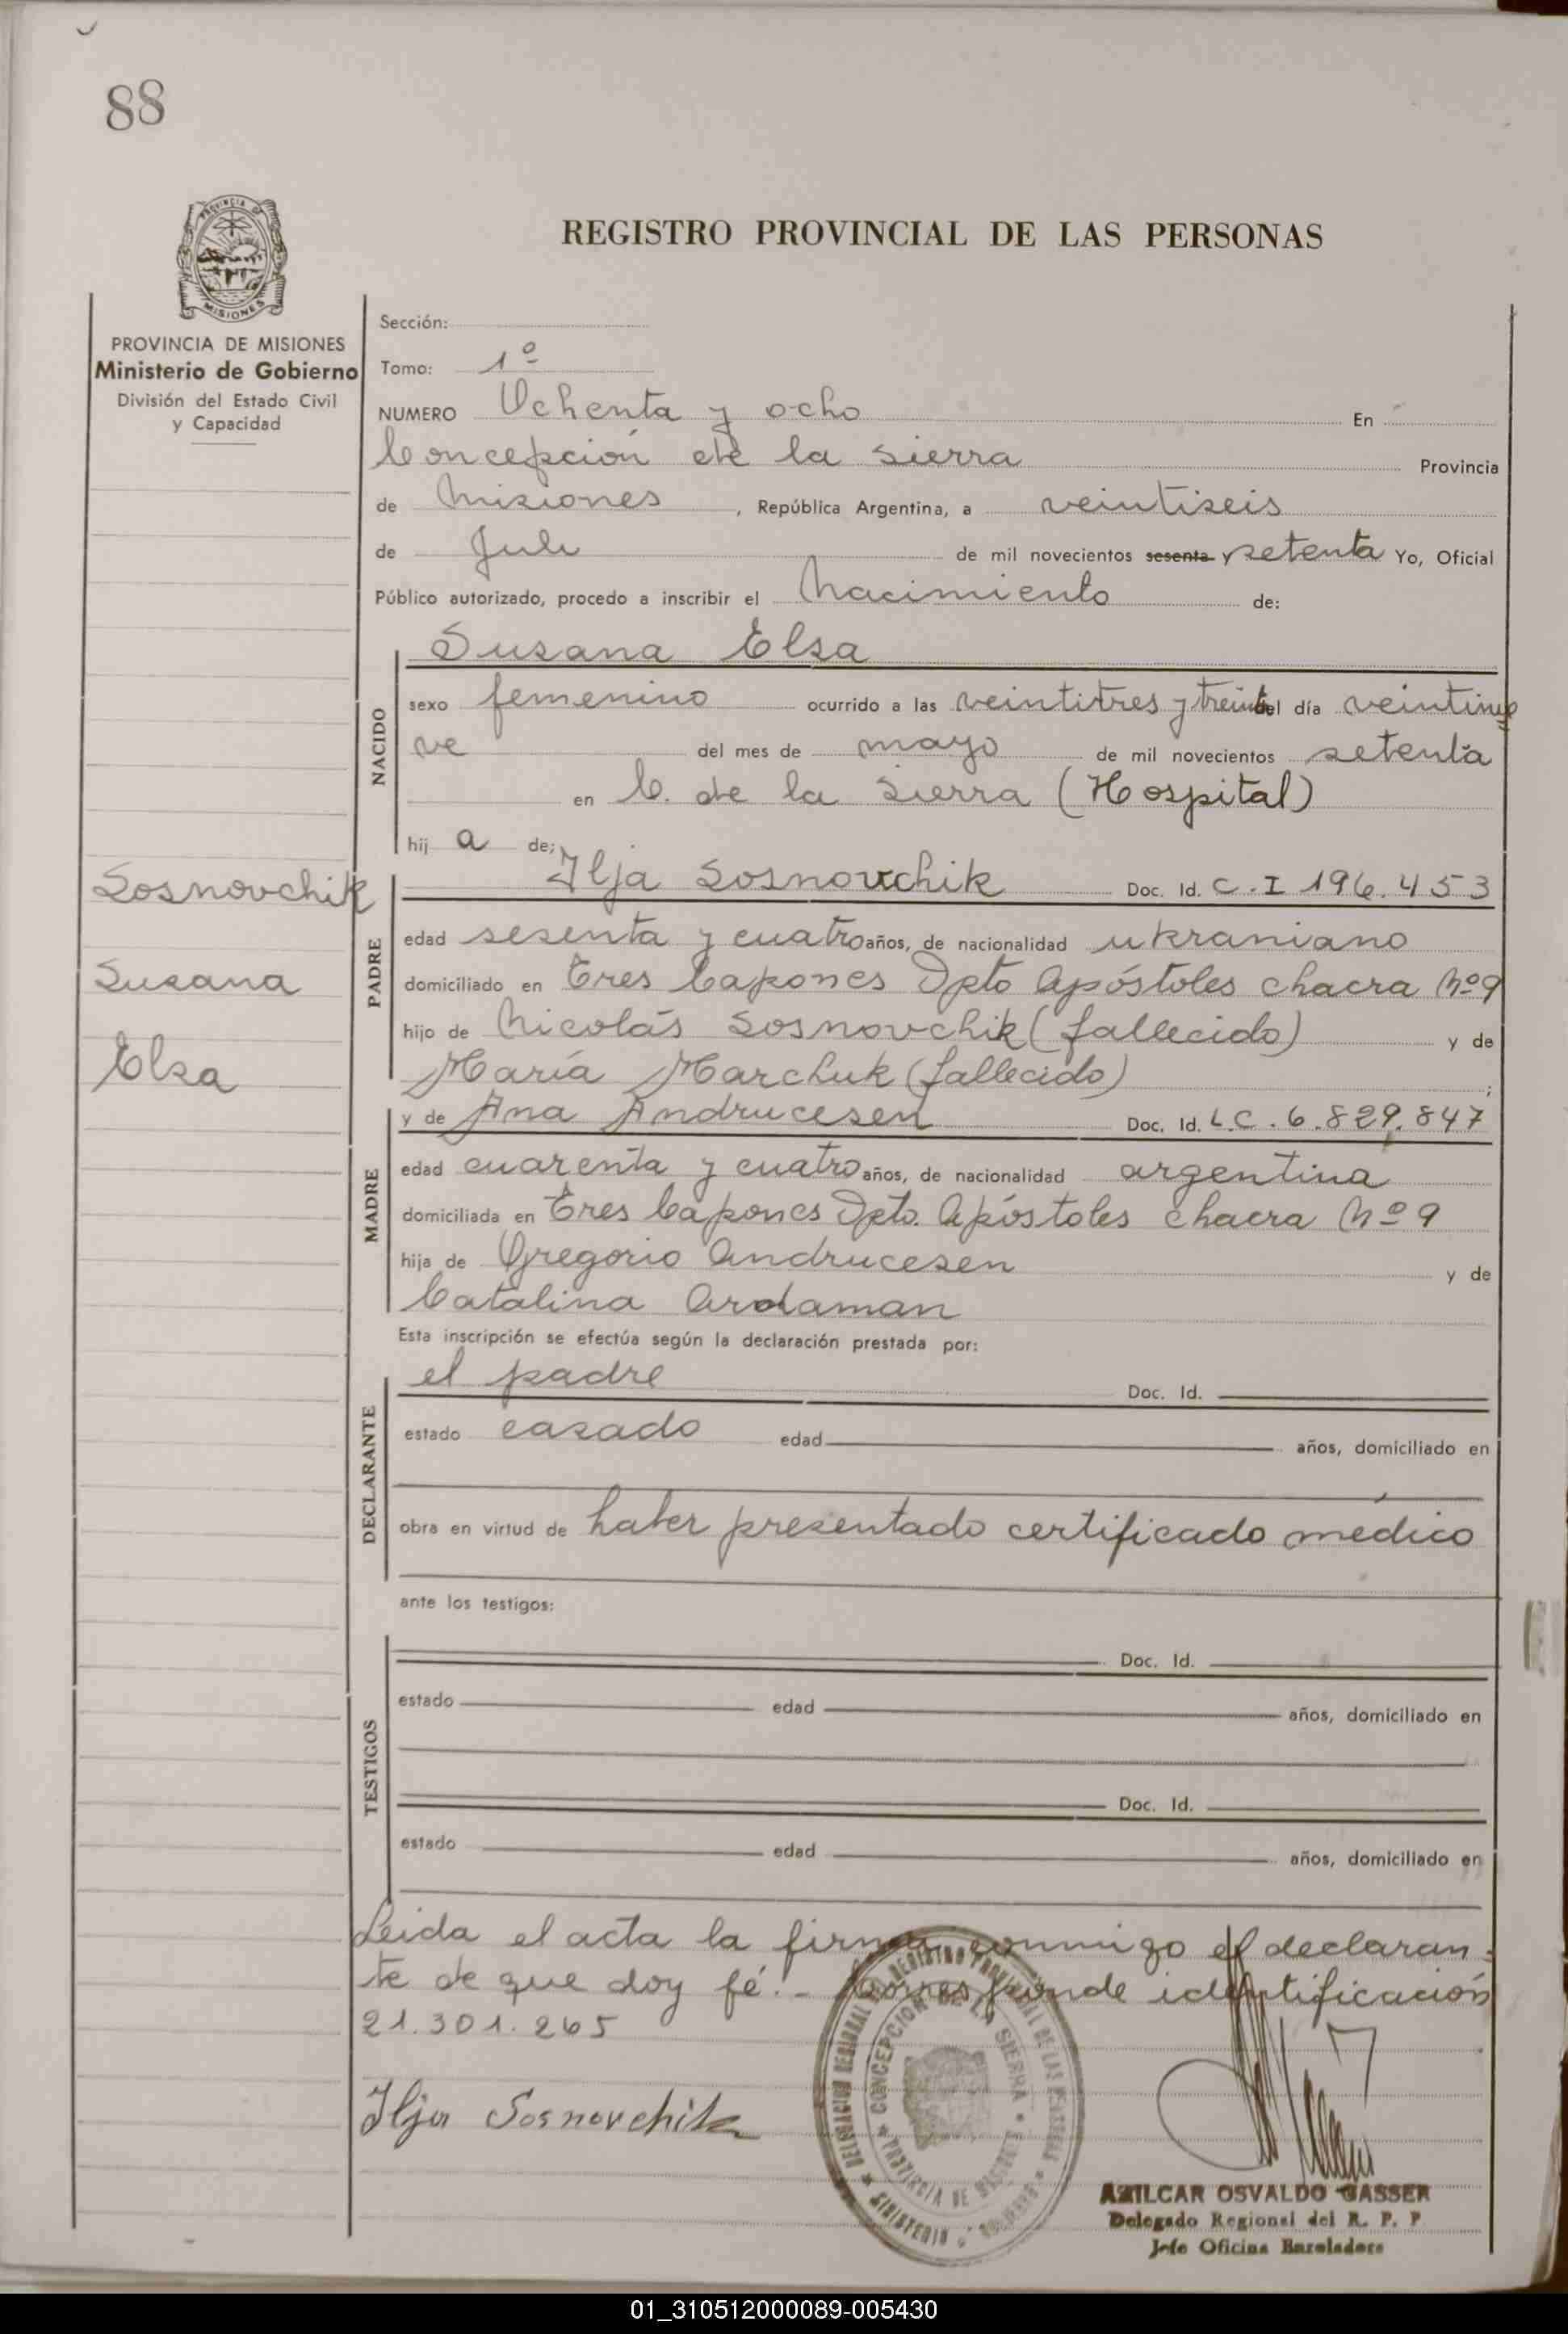 88
PROVINCIA DE
MISIONES
REGISTRO PROVINCIAL DE LAS PERSONAS
PROVINCIA DE MISIONES
Ministerio de Gobierno
División del Estado Civil
y Capacidad
Sosnovchik
Susana
Elsa
Sección:
Tomo: 1º
NUMERO Ochenta y ocho En
Concepción de la Sierra Provincia
de Misiones, República Argentina, a veintiseis
de Juli de mil novecientos sesenta y setenta Yo, Oficial
Público autorizado, procedo a inscribir el Nacimiento de:
Susana Elsa
NACIDO
sexo femenino ocurrido a las veintitres y treinta del día veintinue
ve del mes de mayo de mil novecientos setenta
en C. de la Sierra (Hospital)
hij a de:
PADRE
Ilja Sosnovchik Doc. Id. C.I 196.453
edad sesenta y cuatro años, de nacionalidad ukraniano
domiciliado en Tres Capones Dpto Apóstoles chacra Nº 9
hijo de Nicolás Sosnovchik (fallecido) y de
María Marchuk (fallecido) ;
MADRE
y de Ana Andrucesen Doc. Id. L.C. 6.829.847
edad cuarenta y cuatro años, de nacionalidad argentina
domiciliada en Tres Capones Dpto. Apóstoles chacra Nº 9
hija de Gregorio Andrucesen y de
Catalina Ardaman
Esta inscripción se efectúa según la declaración prestada por:
DECLARANTE
el padre Doc. Id.
estado casado edad años, domiciliado en
obra en virtud de haber presentado certificado médico
ante los testigos:
TESTIGOS
Doc. Id.
estado edad años, domiciliado en
Doc. Id.
estado edad años, domiciliado en
Leida el acta la firma conmigo el declaran-
te de que doy fé.- Corresponde identificación
21.301.265
Ilja Sosnovchik
DELEGACION REGIONAL DEL REGISTRO PROVINCIAL DE LAS PERSONAS
CONCEPCION DE LA SIERRA
PROVINCIA DE MISIONES
MINISTERIO
AMILCAR OSVALDO GASSER
Delegado Regional del R. P. P.
Jefe Oficina
01_310512000089-005430